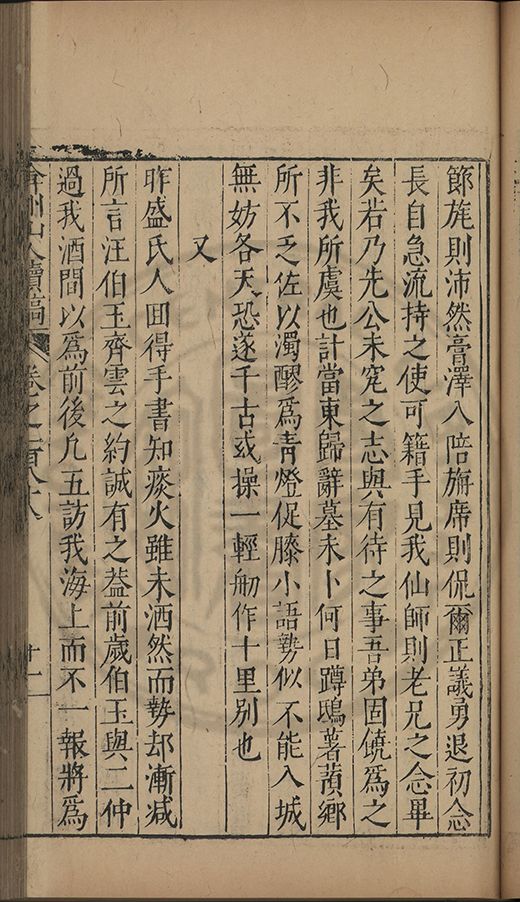 節旄則沛然膏澤入陪旃席則侃爾正議勇退初念
長自急流持之使可籍手見我仙師則老兄之念畢
矣若乃先公未究之志與有待之事吾弟固饒為之
非我所虞也計當東歸辭墓未卜何日蹲鴟薯蕷鄉
所不乏佐以濁醪為青燈促膝小語勢似不能入城
無妨各天恐遂千古或操一輕舠作十里別也
又
昨盛氏人囬得手書知痰火雖未洒然而勢却漸减
所言汪伯玉齊雲之約誠有之葢前歲伯玉與二仲
過我酒間以為前後凢五訪我海上而不一報將為
弇州山人續稿 卷之一百八十八 十一